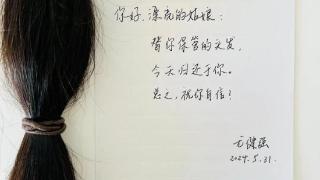 你好，漂亮的姑娘：
替你保管的头发，
今天归还于你。
总之，祝你自信！
方健强
2024.5.31.